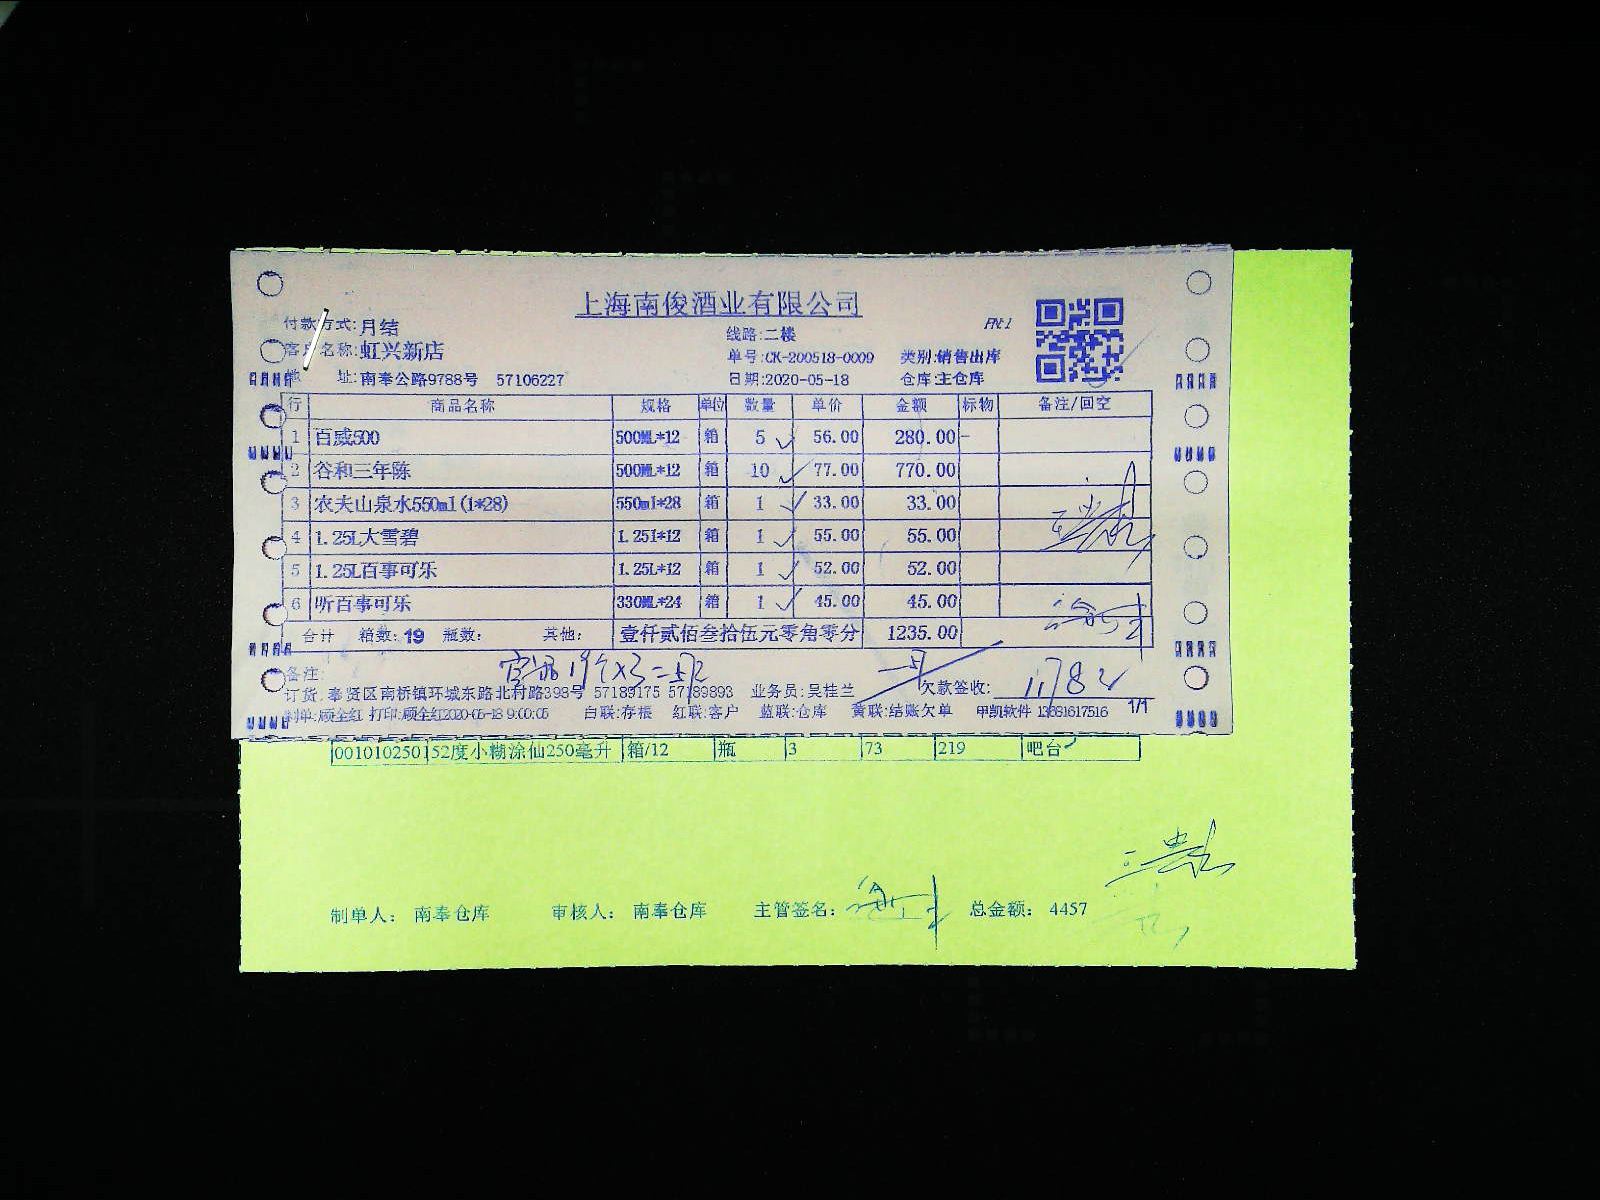 上海南俊酒业有限公司
付款方式:月结
线路:二楼
客户名称:虹兴新店
单号:CK-200518-0009 类别:销售出库
地 址:南奉公路9788号 57106227
日期:2020-05-18 仓库:主仓库
行 商品名称 规格 单位 数量 单价 金额 标物 备注/回空
1 百威500 500ML*12 箱 5 56.00 280.00 -
2 谷和三年陈 500ML*12 箱 10 77.00 770.00
3 农夫山泉水550ml(1*28) 550ml*28 箱 1 33.00 33.00
4 1.25L大雪碧 1.25l*12 箱 1 55.00 55.00
5 1.25L百事可乐 1.25L*12 箱 1 52.00 52.00
6 听百事可乐 330ML*24 箱 1 45.00 45.00
合计 箱数: 19 瓶数: 其他: 壹仟贰佰叁拾伍元零角零分 1235.00
备注:
订货.奉贤区南桥镇环城东路北村路398号 57189175 57189893 业务员:吴桂兰 欠款签收: 1178
制单:顾全红 打印:顾全红2020-05-18 9:00:05 白联:存根 红联:客户 蓝联:仓库 黄联:结账欠单 甲凯软件 13681617516 1/1
001010250 52度小糊涂仙250毫升 箱/12 瓶 3 73 219 吧台
制单人: 南奉仓库 审核人: 南奉仓库 主管签名: 总金额: 4457